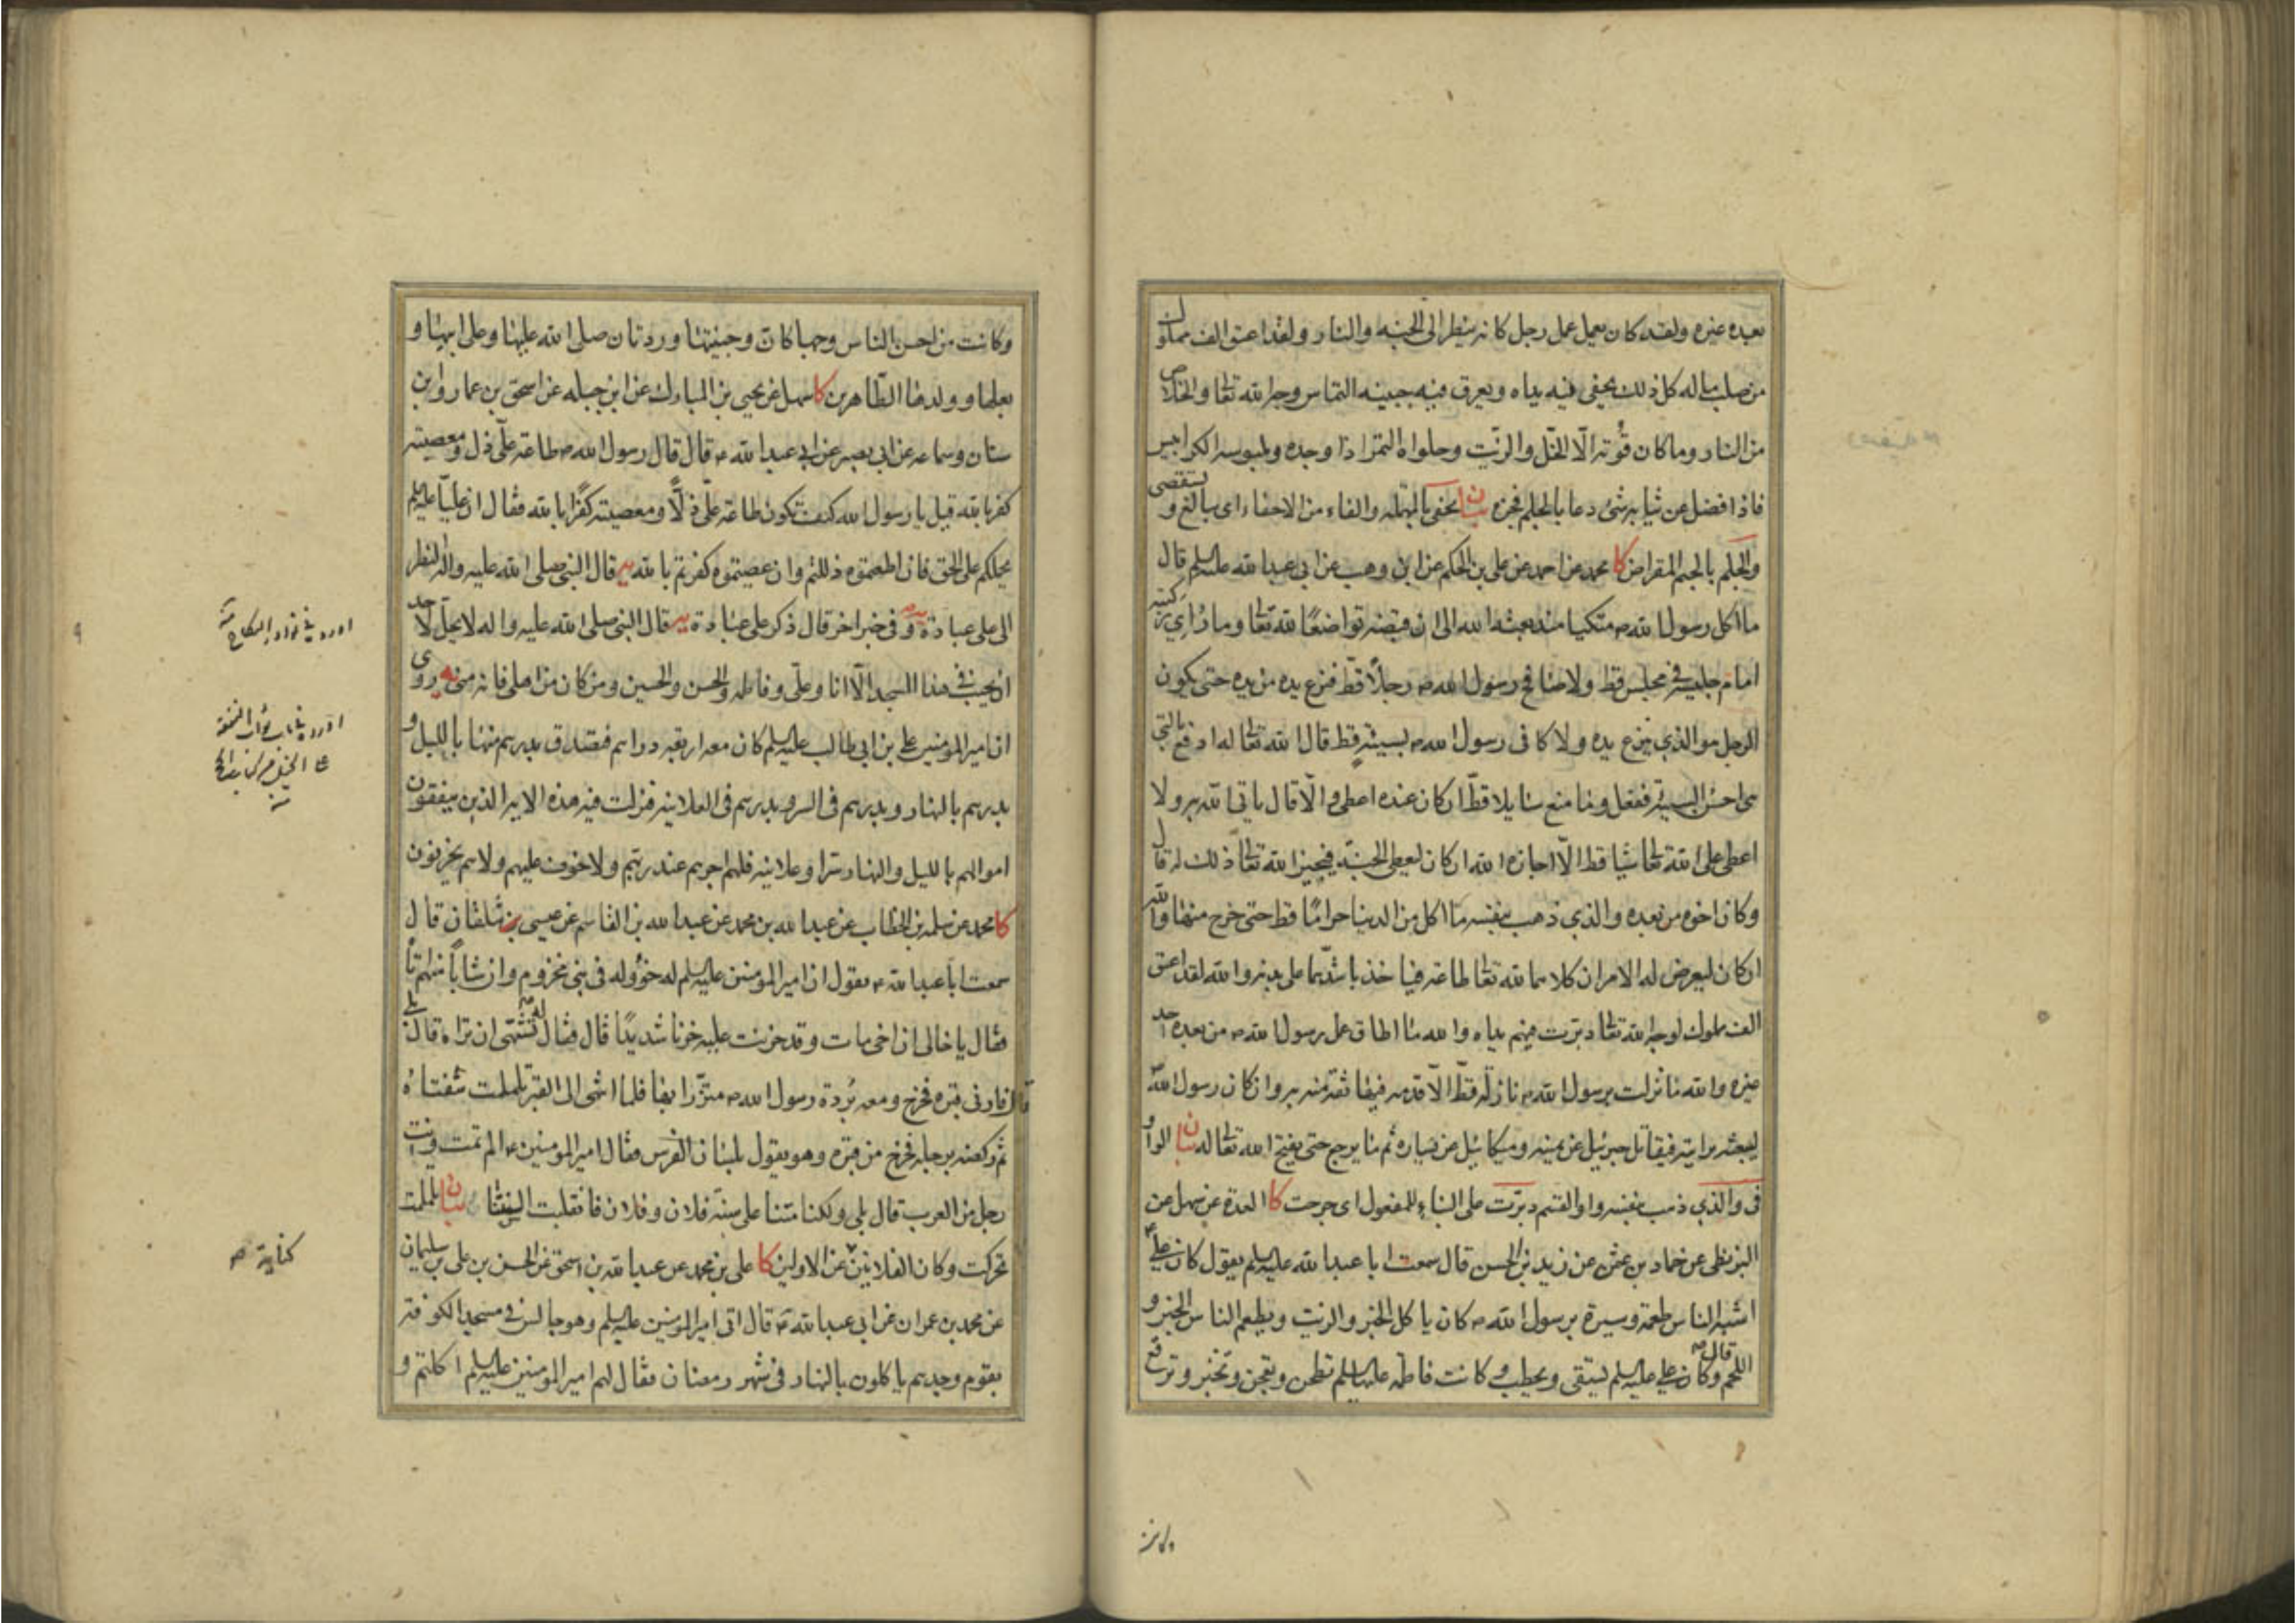 بعده غيره ولقد كان يعمل عمل رجل كانه ينظر الى الجنه والنار ولقد اعتق الف مملوك
من صلب ماله كل ذلك يحفى فيه يداه ويعرق فيه جبينه التماس وجه الله تعالى والخلاص
من النار وما كان قوته الا الخل والزيت وحلواه التمر اذا وجده وملبوسه الكرابيس
فاذا فضل عن ثيابه شئ دعا بالجلم فجزه بيان يحفى بالمهمله والفاء من الاحفاء اى يبالغ و يستقصى
والجلم بالجيم المقراض كا محمد عن احمد عن على بن الحكم عن ابن وهب عن ابى عبد الله عليه السلم قال
ما اكل رسول الله ص متكيا منذ بعثه الله الى ان قبضه تواضعًا لله تعالى وما راى ركبتيه
امام جليسه فى مجلس قط ولا صافح رسول الله ص رجلاً قط فنزع يده من يده حتى يكون
الرجل هو الذي ينزع يده ولا كافى رسول الله ص بسيئة قط قال الله تعالى له ادفع بالتى
هى احسن السيئة ففعل وما منع سايلا قط ان كان عنده اعطى والا قال ياتى الله به ولا
اعطى على الله تعالى شيا قط الا اجازه الله ان كان ليعطى الجنة فيجيز الله تعالى ذلك له قال
وكان اخوه من بعده والذي ذهب بنفسه ما اكل من الدنيا حرامًا قط حتى خرج منها والله
ان كان ليعرض له الامران كلاهما لله تعالى طاعة فياخذ باشدهما على بدنه والله لقد اعتق
الف مملوك لوجه الله تعالى دبرت فيهم يداه والله ما اطاق عمل رسول الله ص من بعده احد
غيره والله ما نزلت برسول الله ص نازلة قط الا قدمه فيها ثقة منه به وان كان رسول الله
ليبعثه برايته فيقاتل جبرئيل عن يمينه وميكائيل عن يساره ثم ما يرجع حتى يفتح الله تعالى له بيان الواو
فى والذي ذهب بنفسه واو القسم دبرت على البناء للمفعول اى جرحت كا العدة عن سهل عن
البزنطى عن حماد بن عثمن عن زيد بن الحسن قال سمعت ابا عبد الله عليه السلم يقول كان على
اشبه الناس طعمة وسيرة برسول الله ص كان ياكل الخبز والزيت ويطعم الناس الخبز و
اللحم قال وكان على عليه السلم يستقى ويحطب وكانت فاطمة عليها السلم تطحن وتعجن وتخبز وترقع
وكانت
وكانت من احسن الناس وجها كان وجنيتها وردتان صلى الله عليها وعلى ابيها و
بعلها وولدها الطاهرين كا سهل عن يحيى بن المبارك عن ابن جبله عن اسحق بن عمار وابن
سنان وسماعه عن ابى بصير عن ابى عبد الله ع قال قال رسول الله ص طاعة على ذل ومعصيته
كفر بالله قيل يا رسول الله كيف تكون طاعة على ذلاً ومعصيته كفرًا بالله فقال ان عليًا عليه السلم
يحملكم على الحق فان اطعمتوه ذللتم وان عصيتموه كفرتم بالله يه قال النبى صلى الله عليه واله النظر
الى على عبادة يه وفى خبر اخر قال ذكر على عبادة يه قال النبى صلى الله عليه واله لا يحل لاحد
ان يجنب فى هذا المسجد الا انا وعلى وفاطمه والحسن والحسين ومن كان من اهلى فانه منى يه روى
ان امير المؤمنين على بن ابى طالب عليه السلم كان معه اربعة دراهم فتصدق بدرهم منها بالليل و
بدرهم بالنهار وبدرهم فى السر وبدرهم فى العلانيه فنزلت فيه هذه الايه الذين ينفقون
اموالهم بالليل والنهار سرا وعلانيه فلهم اجرهم عند ربهم ولا خوف عليهم ولا هم يحزنون
كا محمد عن سلمه بن الخطاب عن عبد الله بن محمد عن عبد الله بن القاسم عن عيسى بن شلقان قال
سمعت ابا عبد الله ع يقول ان امير المؤمنين عليه السلم له خؤوله فى بنى مخزوم وان شاباً منهم اتاه
فقال يا خالى ان اخى مات وقد حزنت عليه حزنا شديدًا قال فقال له تشتهى ان تراه قال بلى
قال فارنى قبره فخرج ومعه بُردة رسول الله ص متزرا بها فلما انتهى الى القبر تلملمت شفتاه
ثم ركضه برجله فخرج من قبره وهو يقول بلسان الفرس فقال امير المؤمنين ع الم تمت وانت
رجل من العرب قال بلى ولكنا متنا على سنة فلان وفلان فانقلبت السنتنا بيان تلملمت
تحركت وكان الفلانين عن الاولين كا على بن محمد عن عبد الله بن اسحق عن الحسن بن على بن سليمان
عن محمد بن عمران عن ابى عبد الله ع قال اتى امير المؤمنين عليه السلم وهو جالس فى مسجد الكوفة
بقوم وجدهم ياكلون بالنهار فى شهر رمضان فقال لهم امير المؤمنين عليه السلم اكلتم و
اورده فى نوادر النكاح
كناية ص